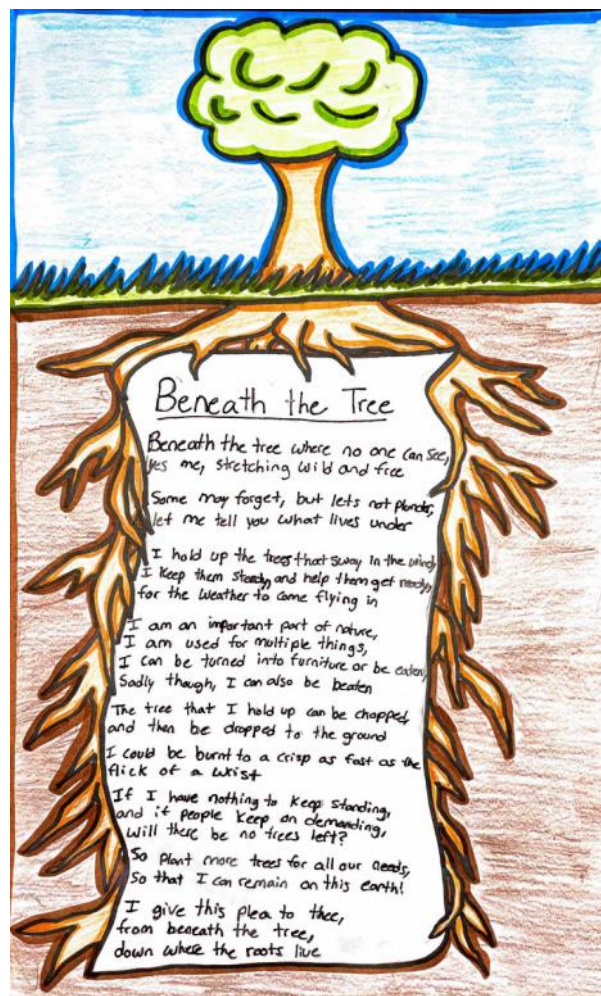 Beneath the Tree
Beneath the tree where no one can see,
yes me, stretching wild and free
Some may forget, but lets not plunder,
let me tell you what lives under
I hold up the trees that sway in the wind,
I keep them steady, and help them get ready,
for the weather to come flying in
I am an important part of nature,
I am used for multiple things,
I can be turned into furniture or be eaten,
Sadly though, I can also be beaten
The tree that I hold up can be chopped,
and then be dropped to the ground
I could be burnt to a crisp as fast as the
flick of a wrist
If I have nothing to keep standing,
and if people keep on demanding,
will there be no trees left?
So plant more trees for all our needs,
So that I can remain on this earth!
I give this plea to thee,
from beneath the tree,
down where the roots live